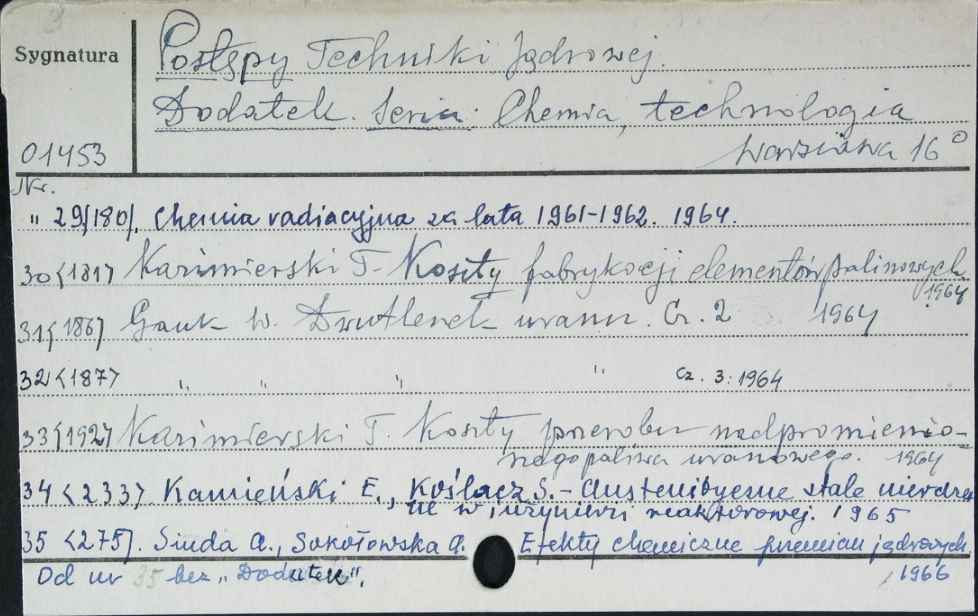 Sygnatura
Postępy Techniki Jądrowej.
Dodatek. Seria: Chemia, technologia
01453
Warszawa 16°
Nr.
" 29/180/. Chemia radiacyjna za lata 1961-1962. 1964.
30<181> Kazimierski T. Koszty fabrykacji elementów paliwowych
1964
31<186> Gauk W. Dwutlenek uranu. Cz. 2 1964
32<187> " " " " cz. 3. 1964
33<192> Kazimierski T. Koszty przerobu nadpromienio-
nego paliwa uranowego. 1964
34<233> Kamieński E., Koślacz S. - Austenityczne stale nierdzew
ne w inżynierii reaktorowej. 1965
35<275>. Siuda A., Sokołowska A. Efekty chemiczne przemian jądrowych.
Od nr 35 bez "Dodatek". 1966